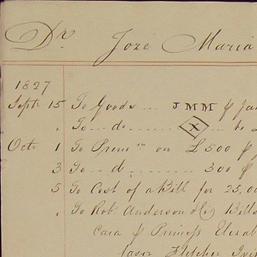 Dr. José Maria
1827
Septr. 15 To Goods ... JMM & Ja
" To ... do ... X ... to L
Octr. 1 To Premm on £500 &
3 To ... do ... 300 &
5 To Cost of a Bill for 25,0
" To Robt Anderson & Co Bill
Cara & Princess Elizab
Fletcher